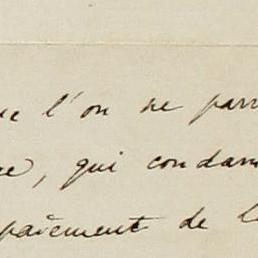 ue l'on ne parv
e, qui condam
paiement de l